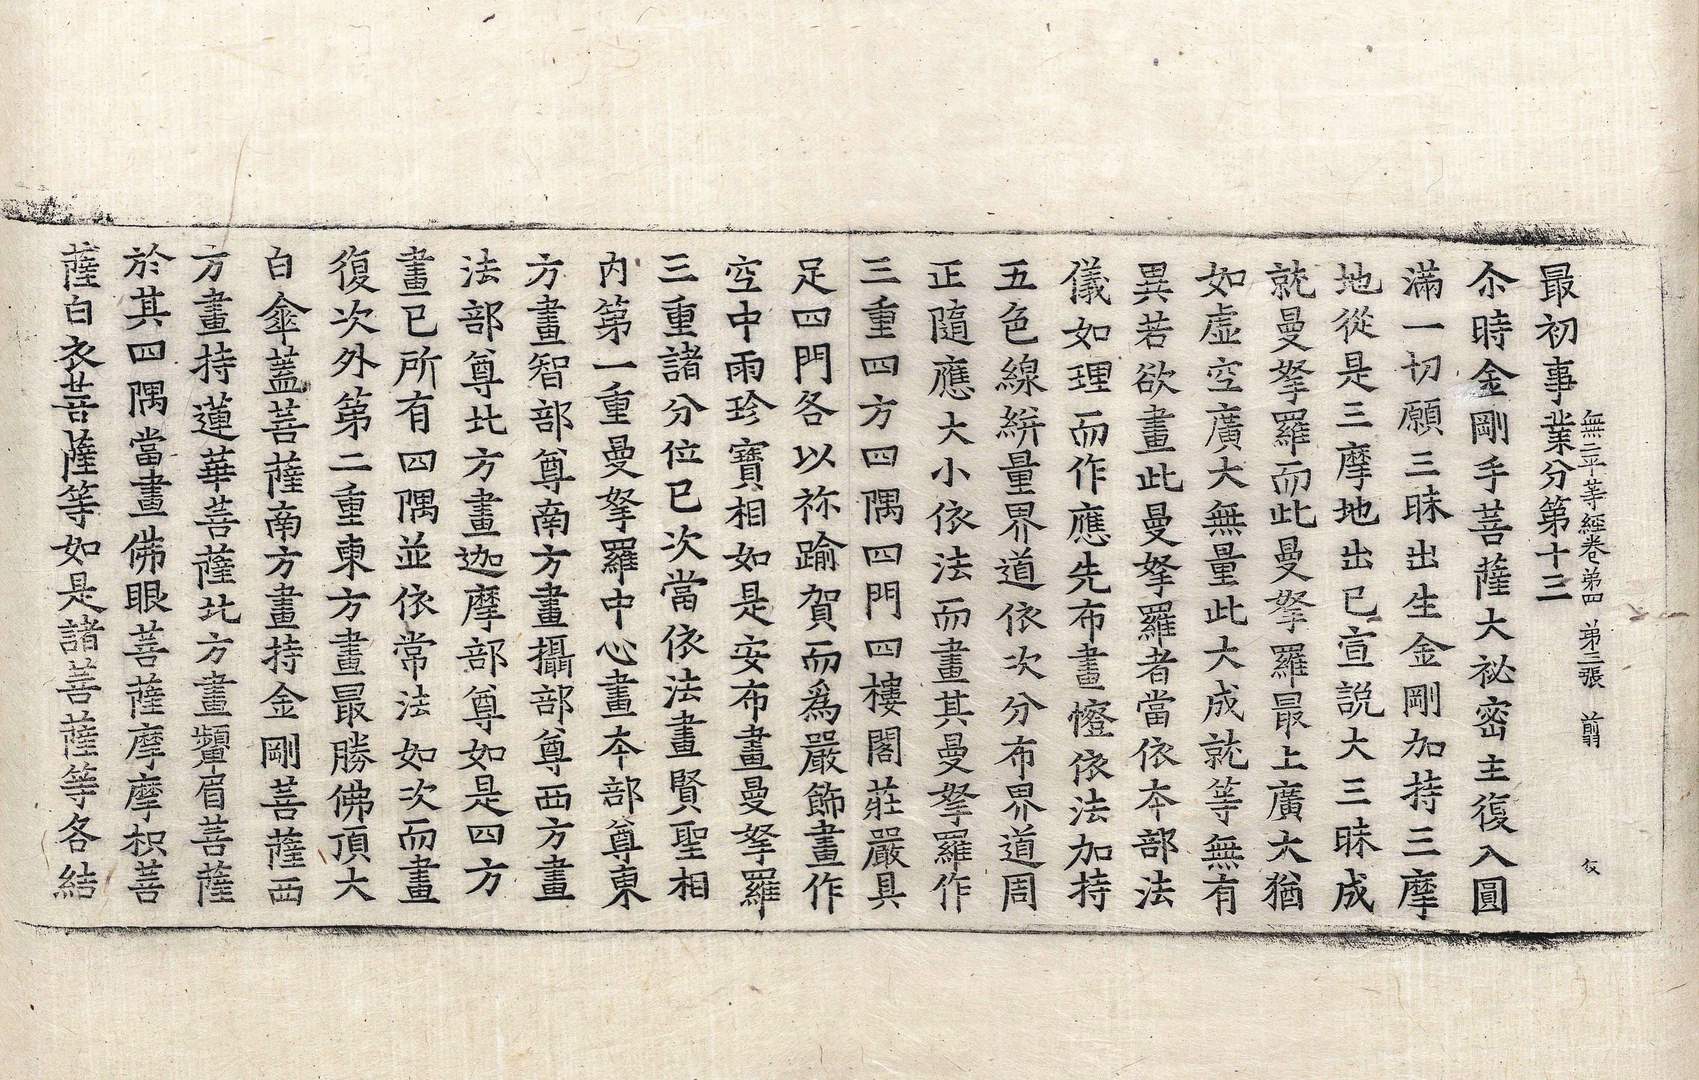 無二平等經卷第四 第三張 翦 㐲
最初事業分第十三
尒時金剛手菩薩大祕密主復入圓
滿一切願三昧出生金剛加持三摩
地從是三摩地出已宣說大三昧成
就曼拏羅而此曼拏羅最上廣大猶
如虛空廣大無量此大成就等無有
異若欲畫此曼拏羅者當依本部法
儀如理而作應先布畫憕依法加持
五色線絣量界道依次分布界道周
正隨應大小依法而畫其曼拏羅作
三重四方四隅四門四樓閣莊嚴具
足四門各以祢踰賀而爲嚴飾畫作
空中雨珍寶相如是安布畫曼拏羅
三重諸分位已次當依法畫賢聖相
內第一重曼拏羅中心畫本部尊東
方畫智部尊南方畫攝部尊西方畫
法部尊北方畫迦摩部尊如是四方
畫已所有四隅並依常法如次而畫
復次外第二重東方畫最勝佛頂大
白傘蓋菩薩南方畫持金剛菩薩西
方畫持蓮華菩薩北方畫顰眉菩薩
於其四隅當畫佛眼菩薩摩摩枳菩
薩白衣菩薩等如是諸菩薩等各結